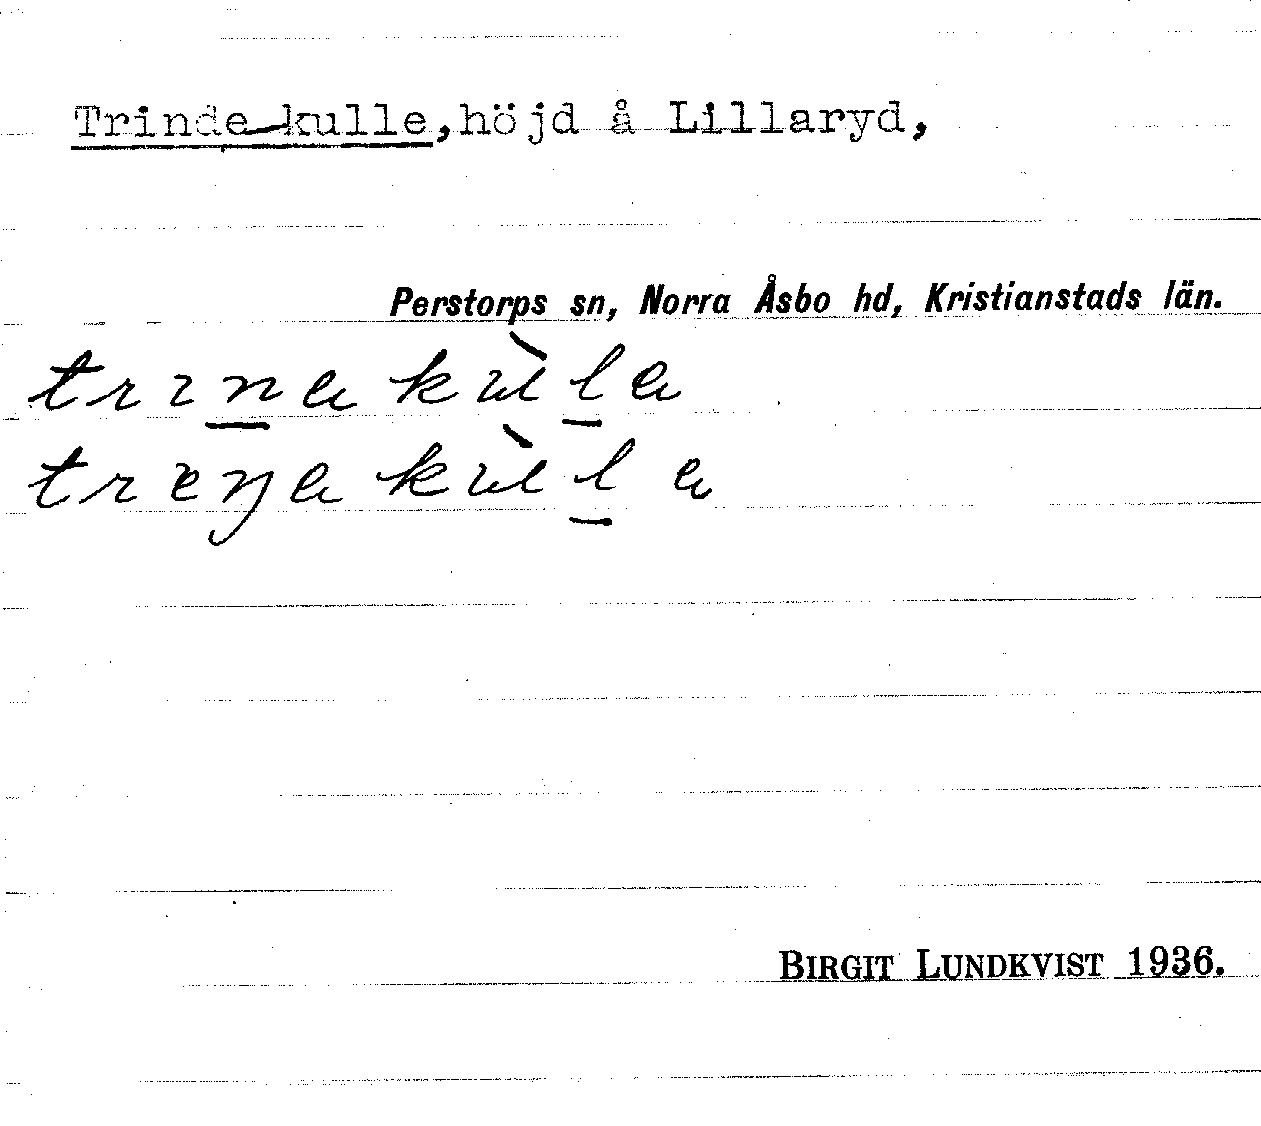 Trinde-kulle, höjd å Lillaryd,
Perstorps sn, Norra Åsbo hd, Kristianstads län.
trınakùla
treŋakùla
BIRGIT LUNDKVIST 1936.